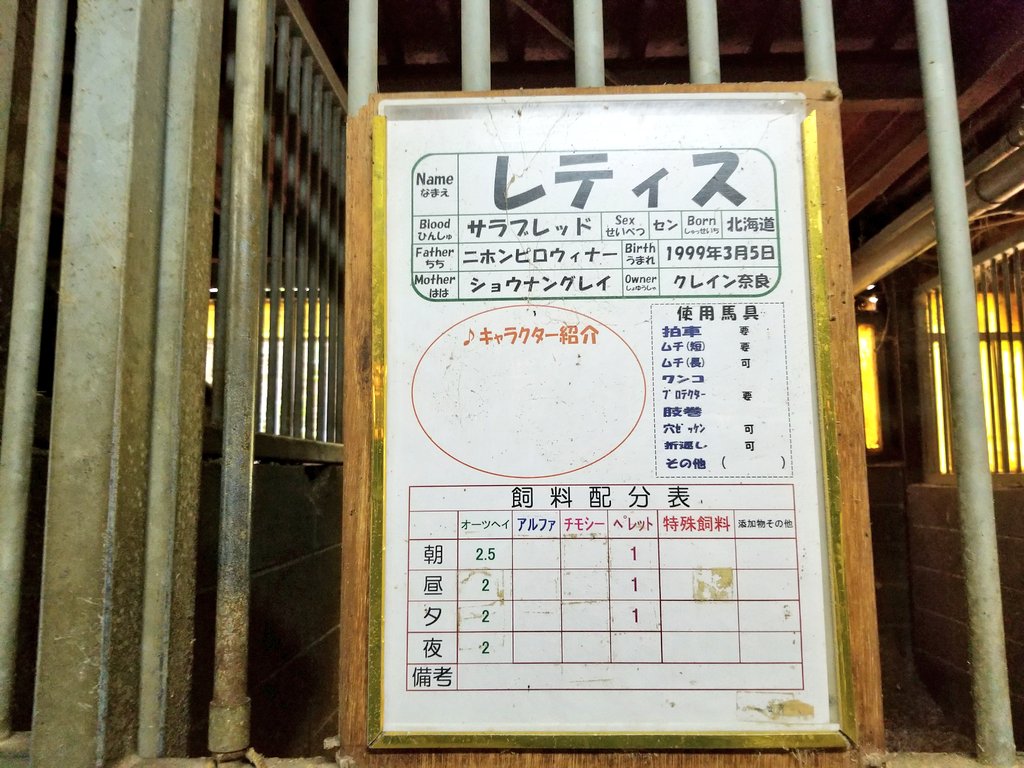 Name なまえ レティス
Blood ひんしゅ サラブレッド Sex せいべつ セン Born しゅっせいち 北海道
Father ちち ニホンピロウィナー Birth うまれ 1999年3月5日
Mother はは ショウナングレイ Owner しょゆうしゃ クレイン奈良
♪キャラクター紹介
使用馬具
拍車 要
ムチ(短) 要
ムチ(長) 可
ワンコ
プロテクター 要
肢巻
穴ゼッケン 可
折返し 可
その他 ( )
飼料配分表
オーツヘイ アルファ チモシー ペレット 特殊飼料 添加物その他
朝 2.5 1
昼 2 1
夕 2 1
夜 2
備考